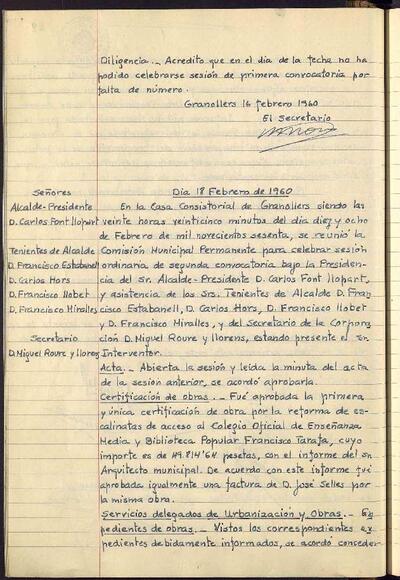 Diligencia._ Acredito que en el día de la fecha no ha
podido celebrarse sesión de primera convocatoria por
falta de número.
Granollers 16 febrero 1960
El Secretario
Señores
Alcalde-Presidente
D. Carlos Font Llopart
Tenientes de Alcalde
D. Francisco Estabanell
D. Carlos Hors
D. Francisco Llobet
D. Francisco Miralles
Secretario
D. Miguel Roure y Llorens
Día 18 Febrero de 1960
En la Casa Consistorial de Granollers siendo las
veinte horas veinticinco minutos del día diez y ocho
de Febrero de mil novecientos sesenta, se reunió la
Comisión Municipal Permanente para celebrar sesión
ordinaria de segunda convocatoria bajo la Presiden-
cia del Sr. Alcalde-Presidente D. Carlos Font Llopart,
y asistencia de los Srs. Tenientes de Alcalde D. Fran
cisco Estabanell, D. Carlos Hors, D. Francisco Llobet
y D. Francisco Miralles, y del Secretario de la Corpora
ción D. Miguel Roure y Llorens, estando presente el Sr.
Interventor.
Acta._ Abierta la sesión y leída la minuta del acta
de la sesión anterior, se acordó aprobarla.
Certificación de obras._ Fué aprobada la primera
y única certificación de obra por la reforma de es-
calinatas de acceso al Colegio Oficial de Enseñanza
Media y Biblioteca Popular Francisco Tarafa, cuyo
importe es de 49.814'64 pesetas, con el informe del Sr.
Arquitecto municipal. De acuerdo con este informe fué
aprobada igualmente una factura de D. José Selles por
la misma obra.
Servicios delegados de Urbanización y Obras._ Ex
pedientes de obras._ Vistos los correspondientes ex
pedientes debidamente informados, se acordó conceder-